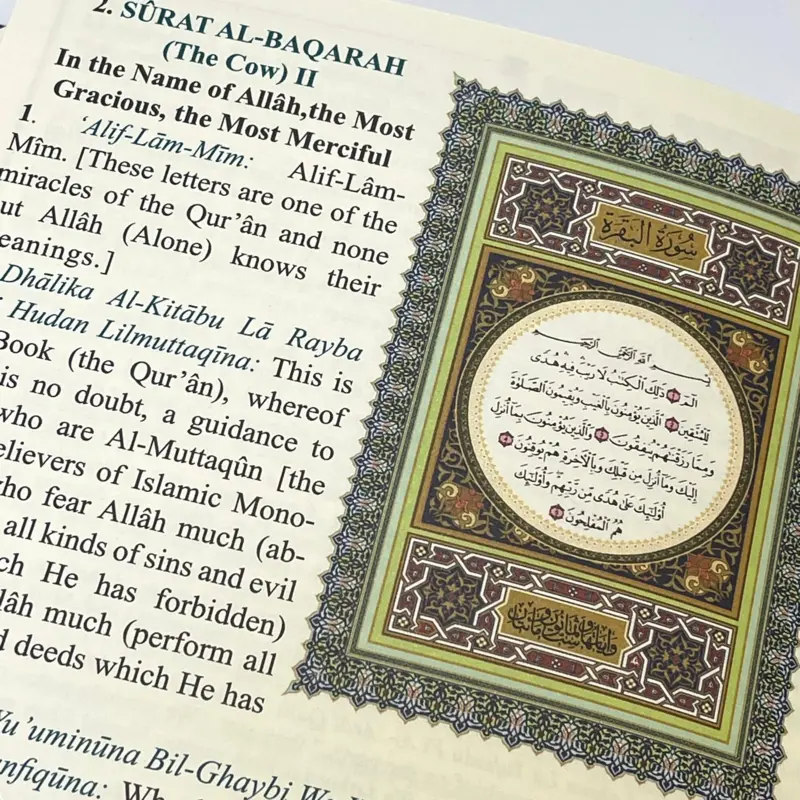 2. SÛRAT AL-BAQARAH
(The Cow) II
In the Name of Allâh,the Most
Gracious, the Most Merciful
1. ‘Alif-Lām-Mīm: Alif-Lâm-
Mîm. [These letters are one of the
miracles of the Qur’ân and none
ut Allâh (Alone) knows their
eanings.]
Dhālika Al-Kitābu Lā Rayba
Hudan Lilmuttaqīna: This is
Book (the Qur’ân), whereof
is no doubt, a guidance to
who are Al-Muttaqûn [the
elievers of Islamic Mono-
ho fear Allâh much (ab-
all kinds of sins and evil
ch He has forbidden)
lâh much (perform all
d deeds which He has
Yu’uminūna Bil-Ghaybi Wa
nfiqūna:
سورة البقرة
بسم الله الرحمن الرحيم
الم ١ ذلك الكتب لا ريب فيه هدى
للمتقين ٢ الذين يؤمنون بالغيب ويقيمون الصلوة
ومما رزقنهم ينفقون ٣ والذين يؤمنون بما أنزل
إليك وما أنزل من قبلك وبالآخرة هم يوقنون ٤
أولئك على هدى من ربهم وأولئك
هم المفلحون ٥